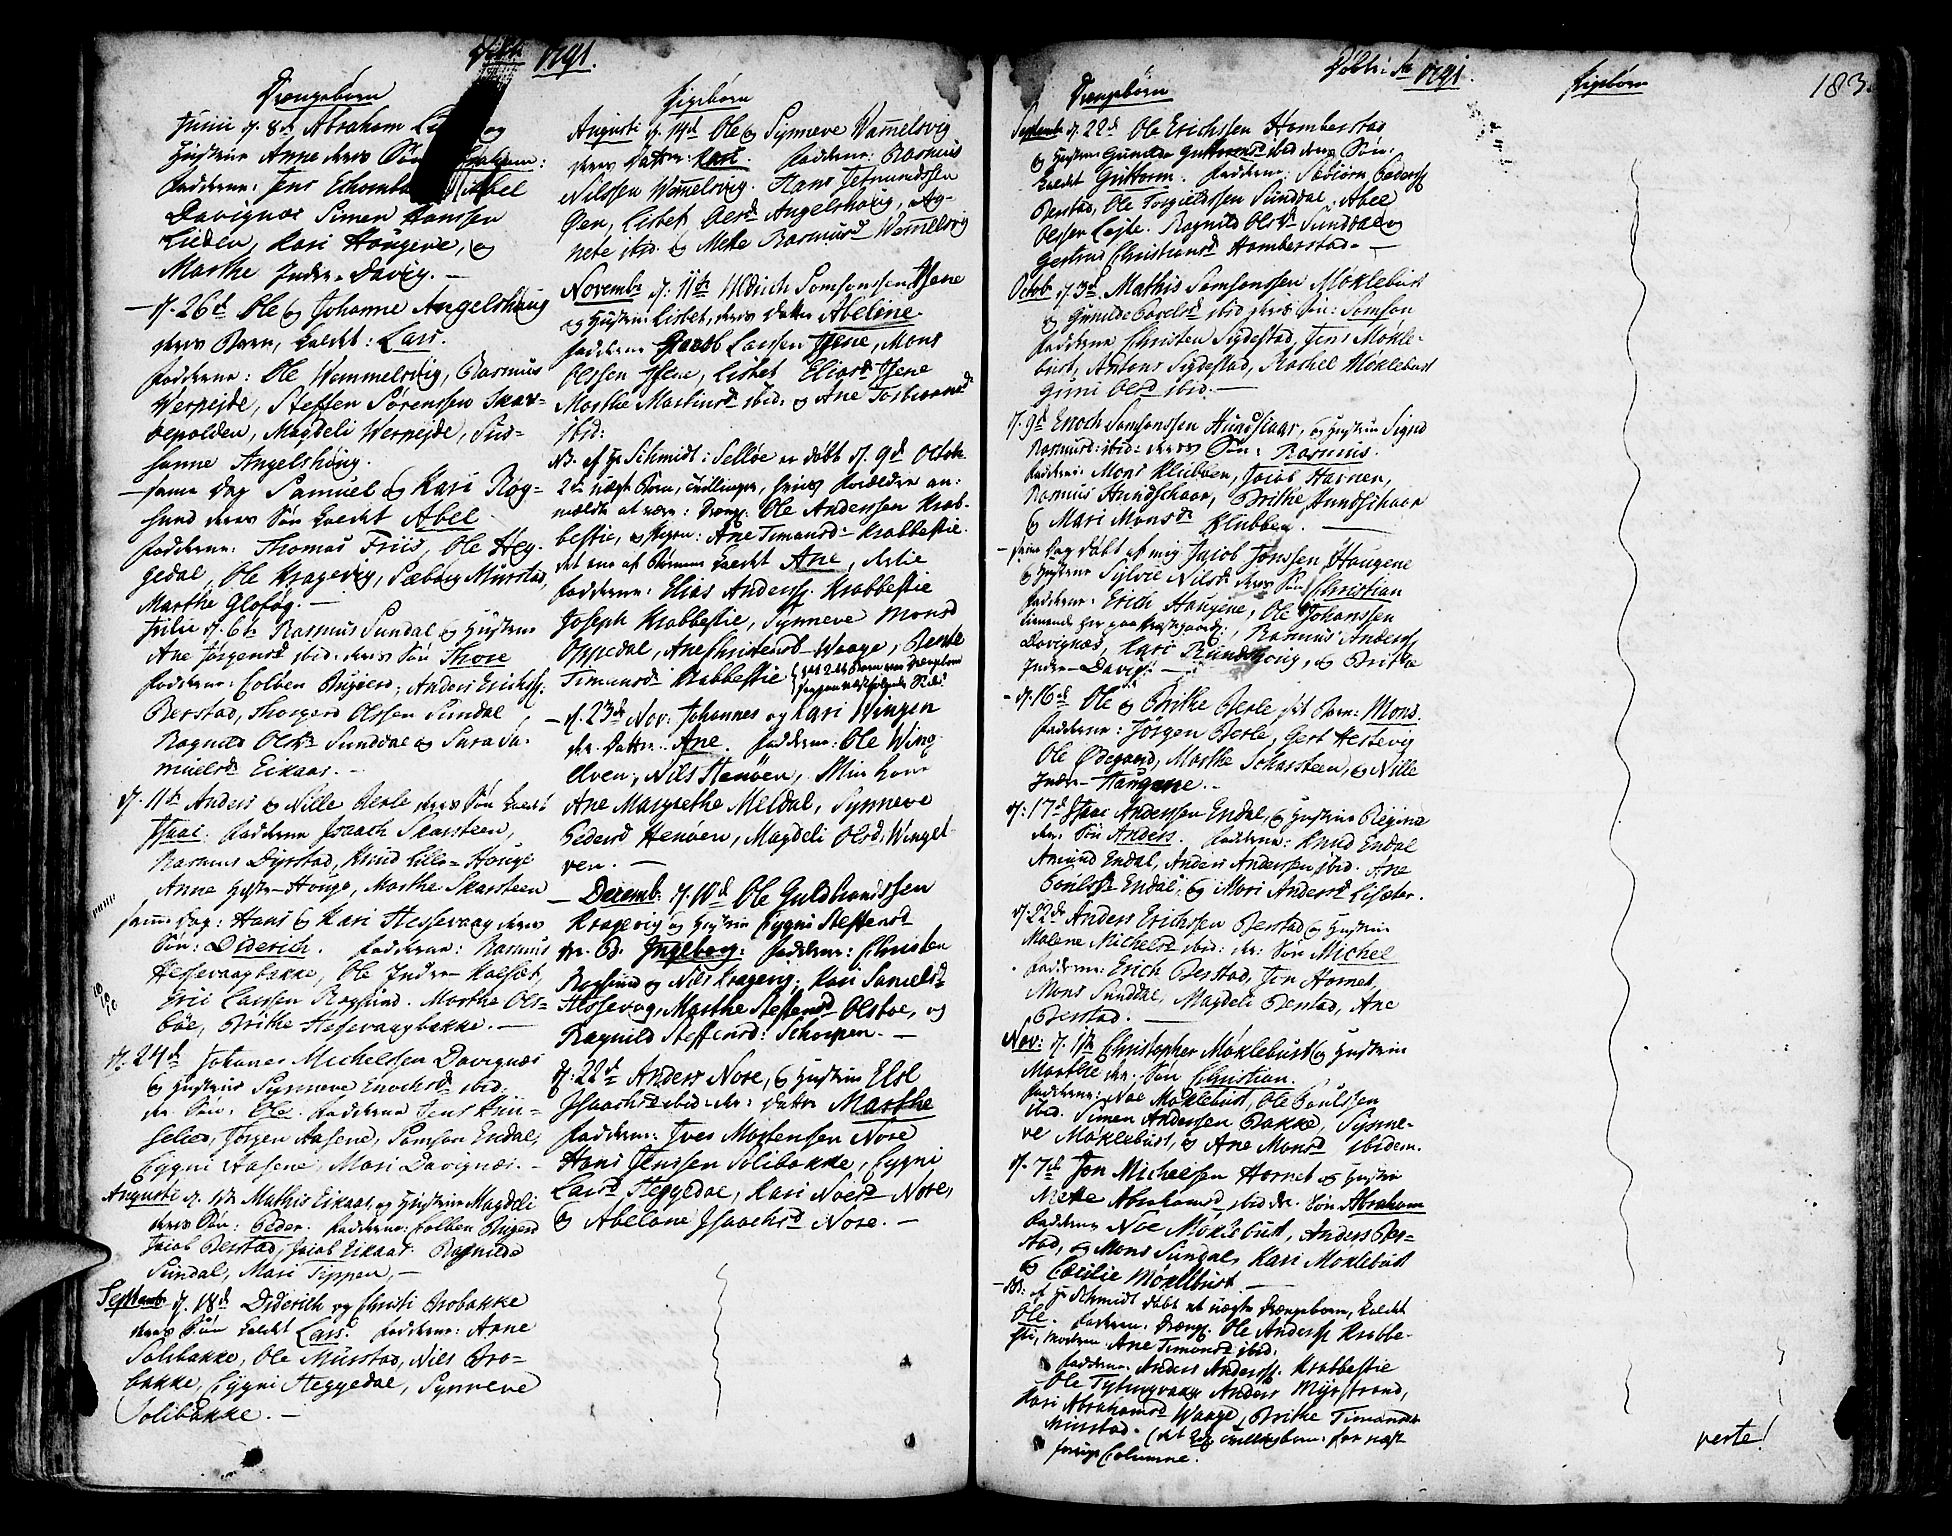 1791.
Drengebørn
Junii d. 8de Abraham og
Hustrue Anne deres Søn
Fadderne: Jens Abel
Davignæs Simen Hanssen
Lieden, Kari Haugene, og
Marthe Indre-Davig. –
– d. 26de Ole og Johanne Angelshaug
deres Barn, kaldet: Lars.
Fadderne: Ole Wemmelsvig, Rasmus
Werpejde, Steffen Sørenssen Skar-
bepolden, Magdeli Werpejde, Sus-
sanne Angelshoug.
– samme dag Samuel og Kari Rog-
sund deres Søn kaldet Abel.
Fadderne: Thomas Friis, Ole Heg-
gedal, Ole Kragevig, Sæborg Musstad,
Marthe Glofog. –
Julii d. 6te Rasmus Sundal og Hustrue
Ane Jørgensd ibid. deres Søn Thore
Fadderne: Colben Anders Erichss.
Berstad, Thorgerd Olssen Sundal,
Ragnild Olsd. Sunddal og Sara Sa-
muelsd Eikaas. –
d. 11te Anders og Nille Berle deres Søn kaldet
Isaac. Fadderne Isaach Skarsteen,
Rasmus Dyrstad, Knud Lille-Houge
Anne Houge, Marthe Skarsteen
samme dag: Hans og Kari Hessevaag deres
Søn: Diderich. Fadderne: Rasmus
Hessevaagbakke, Ole Indre- Kalsæt,
Eric Larssen Rogsund. Marthe Ols-
bøe, Brithe Hessevaagbakke. –
d. 24de Johanes Michelssen Davignæs
og Hustrue Synneve Enochsd ibid.
der. Søn: Ole. Fadderne Jens Hun-
Jørgen Aasene, Samson Endal,
Cygni Aasene, Mari Davignæs. –
Augusti d. 1te Mathis Eikaas og Hustrue Magdeli
deres Søn: Peder. Fadderne: Colben
Jacob Berstad, Jacob Eikaas Ragnilde
Sundal, Mari Tippen, –
Septemb. d. 18de Diderich og Christi Brobakke
deres Søn kaldet Lars. Fadderne: Arne
Solibakke, Ole Musstad, Nils Bro-
bakke, Cygni Heggedal, Synneve
Solibakke. –
Pigebørn
Augusti d. 14de Ole og Synneve Wammelsvig
deres Datter: Kari. Fadderne: Rasmus
Nilssen Wemmelsvig. Hans Jetmundssen
Øen, Lisbet Olsd Angelshoug, Ag-
nete ibid. og Mette Rasmusd Wemmelsvig
Novembr d: 11te Ulrich Samsonssen Isene
og Hustrue Lisbet, deres Datter Abelene.
Fadderne Jacob Larssen Isene, Mons
Olssen Isene, Lisbet Eliasd Isene
Marthe Martinusd ibid. og Ane
ibid:
NB. af Hr Schmidt i Selløe er døbt d. 9de Octob.
2de uægte Børn, Tvillinger, hvis Forældre an-
meldte at være: Drengs. Ole Anderssen Krab-
bestie, og Pigen: Ane Timansd Krabbestie.
det ene af Børnene kaldet Ane, dertil
Fadderne: Elias Anderss. Krabbestie
Joseph Krabbestie, Synneve Monsd
Oppedal, Ane Christensd Waage, Berte
Timansd Krabbestie
– d. 23de Nov: Johannes og Kari Wingen
der. Datter. Ane. Fadderne: Ole Wing
Elven, Nils Henøen, Min kone
Ane Margrethe Meldal, Synneve
Pedersd Henøen, Magdeli Olsd. Wingel-
ven. –
– Decemb. d. 10de Ole Guldbrandssen
Kragevig og Hustrue Cygni Steffensd
der. B. Ingeborg: Fadderne: Christen
Rogsund og Nils Kragevig; Kari Samelsd
Hessevag, Marthe Steffensd Olsboe, og
Ragnild Steffensd: Schorpen. –
d: 22de Anders Nore, og Hustrue Else
Isaachsd ibid. der: Datter Marthe
Fadderne: Iver Mortensen Nore
Hans Jenssen Solibakke, Cygni
Larsd Heggedal, Kari Noesd Nore,
og Abelone Isaachsd Nore. –
Døbte: 1791.
Drengebørn
Pigebørn
183.
Septemb. d. 22de Ole Erichssen Homberstad
og Hustrue Gunilda Guttormsd ibid deres Søn:
kaldet Guttorm. Fadderne: Sebiørn Pederss
Berstad, Ole Torgieldssen Sunddal, Abel
Olssen Leite. Ragnild Olsd Sunddal og
Gertrud Christiansd Homberstad. –
Octob. d. 3de Mathis Samsonssen Møklebust
og Gunilde ibid deres Søn: Samson
Fadderne Christen Sigdestad, Jens Møkle-
bust, Antons Sigdestad, Rachel Møklebust
Guni Olsd ibid. –
d. 9de Enoch Samsonssen Hundskaar, og Hustrue Signe
Rasmusd: ibid: deres Søn: Rasmus.
Fadderne: Mons Klubben, Jacob Havnen,
Rasmus Hundschaar, Brithe Hundschaar
og Mari Monsd Klubben. –
– samme Dag døbt af mig Jacob Jonssen Haugene
og Hustrue Sylvie Nilsd. deres Søn Christian
Fadderne: Erich Haugene, Ole Johanssen
Rasmus Anderss.
Davignæs, Kari Rundehoug, og Brithe
Indre-Davig. –
– d. 16de Ole og Brithe Berle sit Barn: Mons.
Fadderne: Jørgen Berle, Gert Hestevig
Ole Ødegaard, Marthe Scharsteen, og Nille
Indre- Haugene. –
d: 17de Isaac Anderssen Endal, og Hustrue Regina
der. Søn Anders. Fadderne: Knud Endal
Amund Endal, Anders Anderssen ibid. Ane
Paulsd Endal, og Mari Andersd Lisæter.
d. 22de Anders Erichssen Berstad og Hustrue
Malene Michelsd ibid: der: Søn Michel
Fadderne: Erich Berstad, Jon Hornet,
Mons Sunddal, Magdeli Berstad, Ane
Berstad. –
Nov: d. 1te Christopher Møklebust og Hustrue
Marthe der. Søn Christian.
Fadderne: Noe Møklebust, Ole Poulssen
ibid. Simen Anderssen Bakke, Synne-
ve Møklebust, og Ane Monsd ibidem.
d. 7de Jon Michelssen Hornet og Hustrue
Mette Abrahamsd ibid der. Søn Abraham
Fadderne Noe Møklebust, Anders Ber-
stad, og Mons Sundal, Kari Møklebust
og Cæcilie Møklebust. –
– NB: af Hr Schmidt døbt et uægte Drengebarn, kaldet
Ole. Faderen. Drengs. Ole Anderss Krabbe-
stie, Moderen. Ane Timansd ibid.
Fadderne. Anders Anderss. Krabbestie
Ole Anders Myrstrand,
Kari Abrahamsd Waage, Brithe Timansd
Musstad. (det 2det Tvillingbarn. see næst
forrige Columne.
verte!